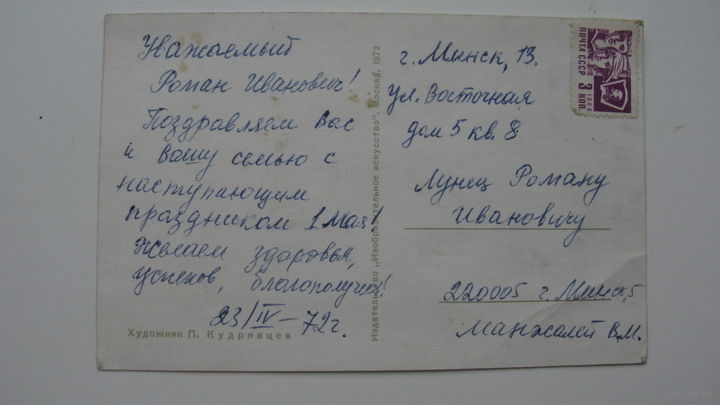 Уважаемый
Роман Иванович!
Поздравляем Вас
и Вашу семью с
наступающим
праздником 1 Мая!
Желаем здоровья,
успехов, благополучия!
23/IV—72г.
Художник П. Кудрявцев
Издательство „Изобразительное искусство". Москва. 1972
г. Минск, 13.
ул. Восточная
дом 5 кв. 8
Лунец Роману
Ивановичу
220005 г. Минск, 5
Манжалей В.М.
ПОЧТА СССР
1966
3 КОП.